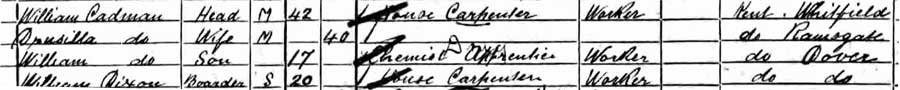 William Cadman Head M 42 House Carpenter Worker Kent Whitfield
Drusilla do Wife M 40 do Ramsgate
William do Son 17 Chemist Apprentice Worker do Dover
William Dixon Boarder S 20 House Carpenter Worker do do